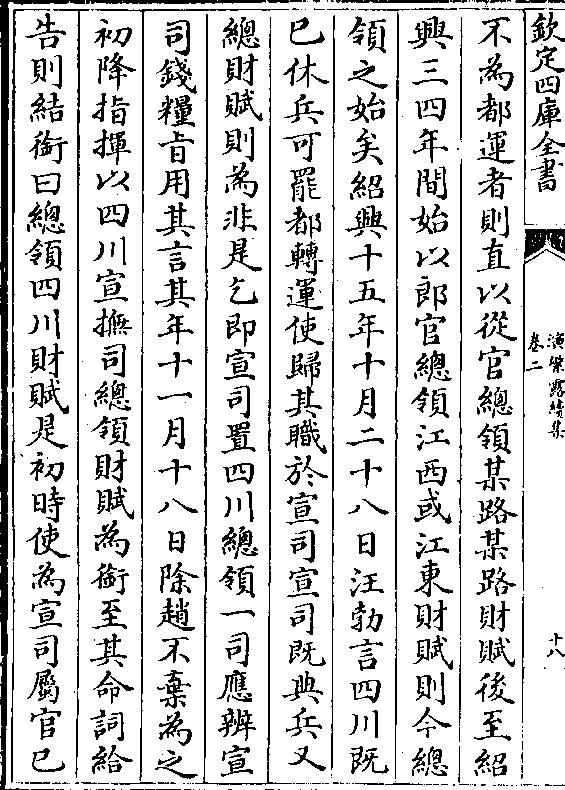 欽定四庫全書
演繁露續集
卷二
十八
不為都運者則直以從官總領某路某路財賦後至紹
興三四年間始以郎官總領江西或江東財賦則今總
領之始矣紹興十五年十月二十八日汪勃言四川既
已休兵可罷都轉運使歸其職於宣司宣司既典兵又
總財賦則為非是乞即宣司置四川總領一司應辨宣
司錢糧旨用其言其年十一月十八日除趙不棄為之
初降指揮以四川宣撫司總領財賦為銜至其命詞給
告則結銜曰總領四川財賦是初時使為宣司屬官已